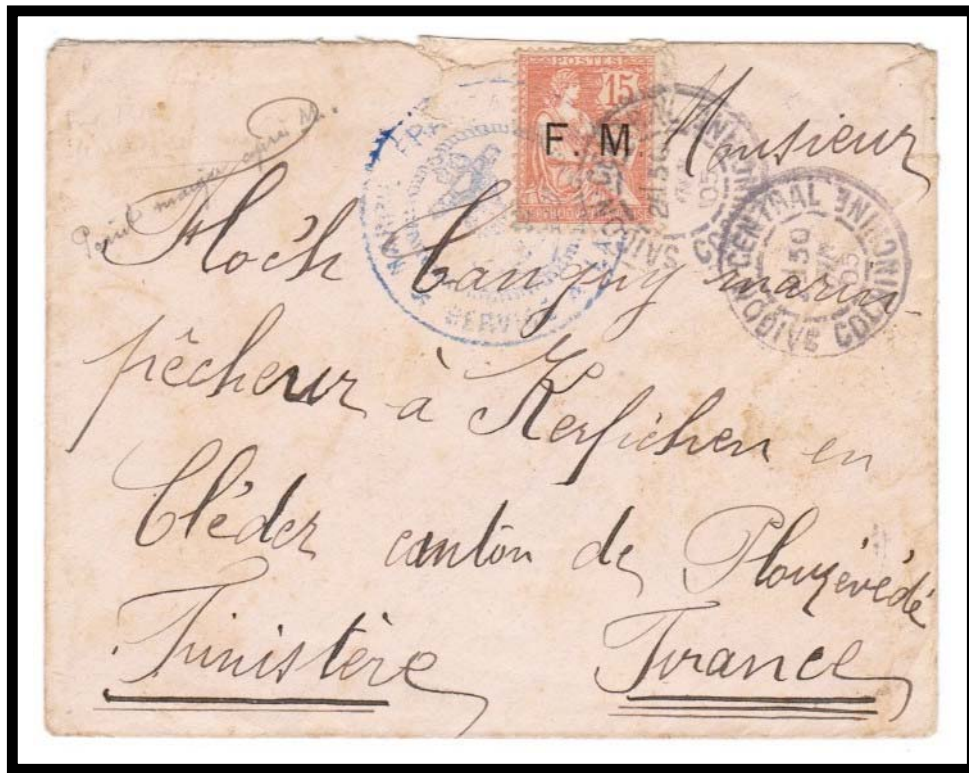 Point manque après M.
POSTES
15
F. M
Monsieur
SAIGON CENTRAL COCHINCHINE
SAIGON CENTRAL COCHINCHINE
SERVICE
Floc'h Tanguy marin
pêcheur à Kerfichen en
Cléder canton de Plouzévédé
Finistère France